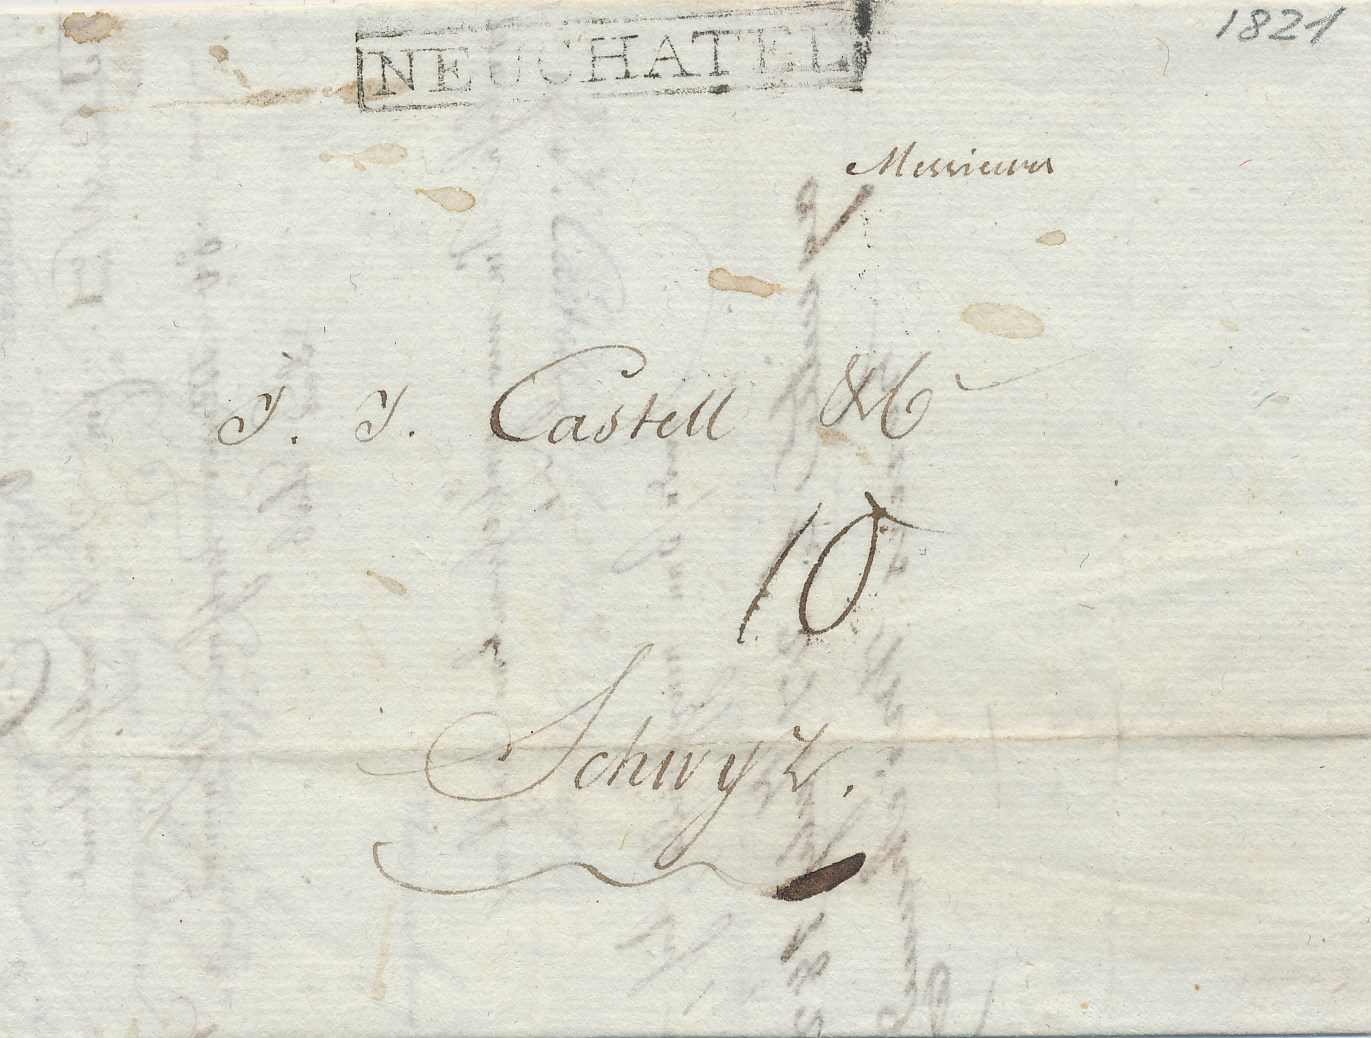 1821
NEUCHATEL
Messieurs
J. J. Castell & C
10
Schwyz.